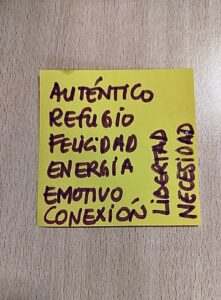 AUTÉNTICO
REFUGIO
FELICIDAD
ENERGÍA
EMOTIVO
CONEXIÓN
LIBERTAD
NECESIDAD